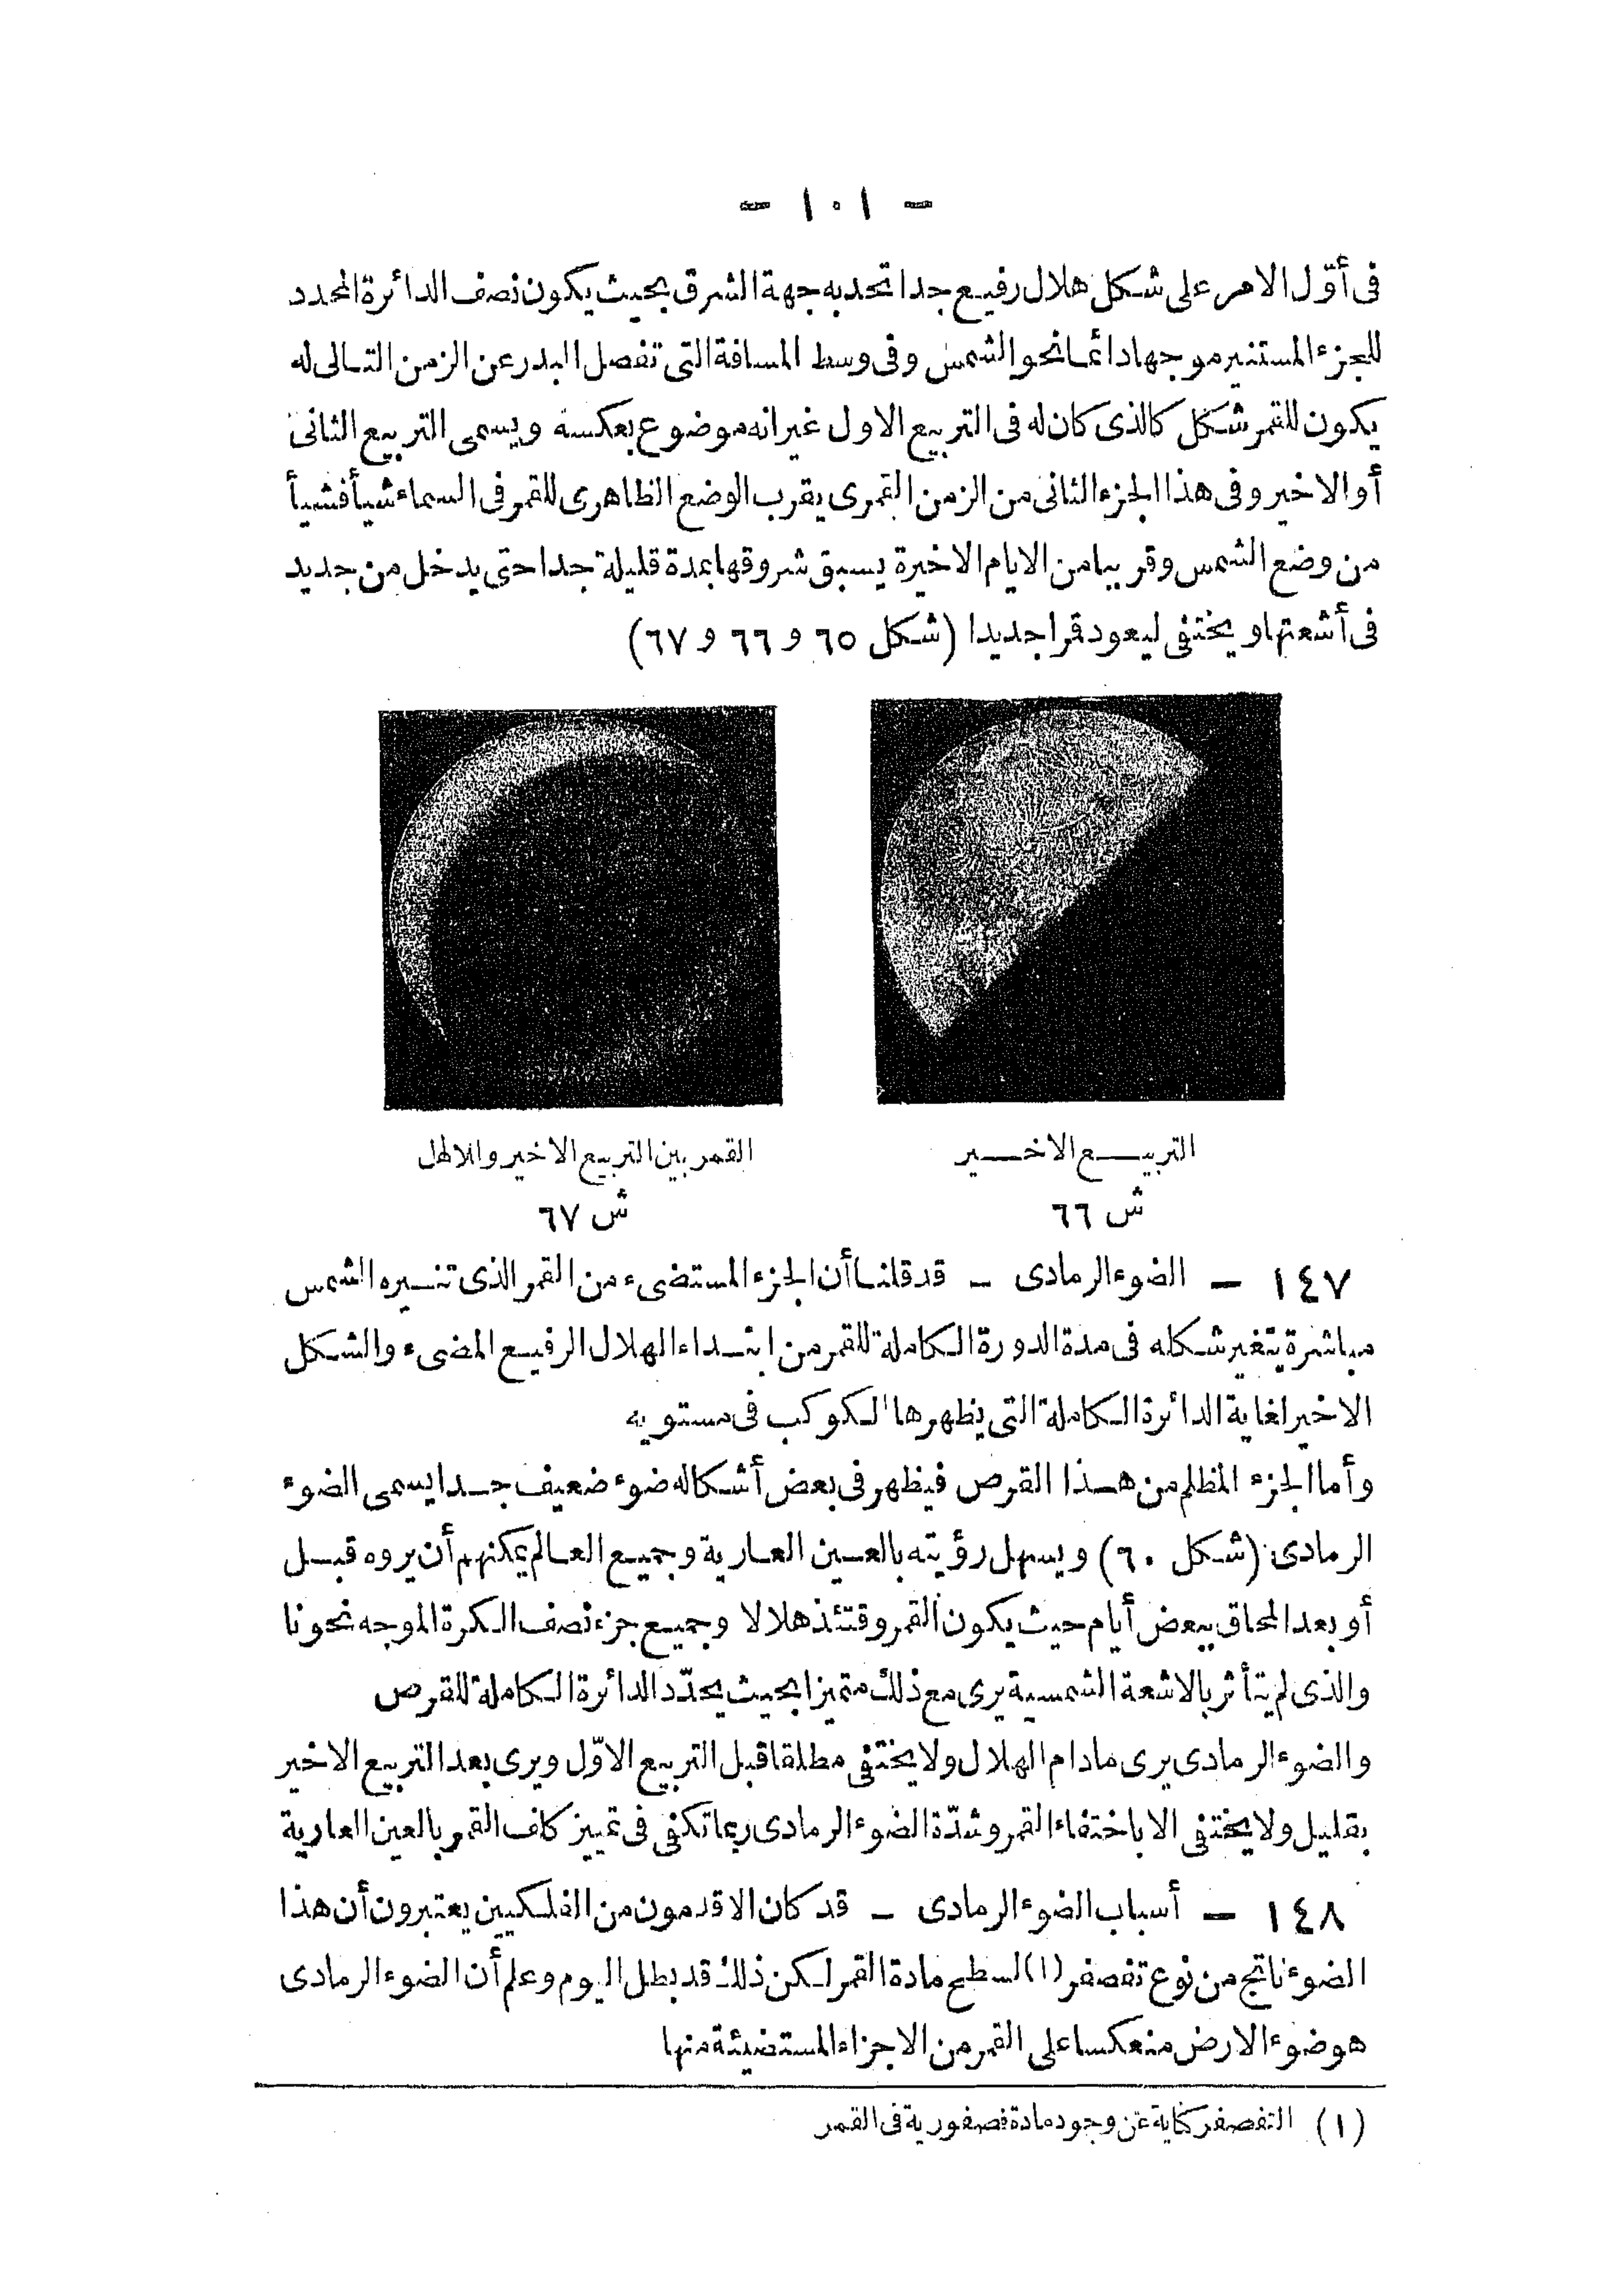 - ١٠١ -
فى أوّل الامر على شكل هلال رفيع جدا تحدبه جهة الشرق بحيث يكون نصف الدائرة المحدد
للجزء المستنير موجها دائما نحو الشمس وفى وسط المسافة التى تفصل البدر عن الزمن التالى له
يكون للقمر شكل كالذى كان له فى التربيع الاول غير انه موضوع بعكسه ويسمى التربيع الثانى
أو الاخير وفى هذا الجزء الثانى من الزمن القمرى يقرب الوضع الظاهرى للقمر فى السماء شيأ فشيأ
من وضع الشمس وقريبا من الايام الاخيرة يسبق شروقها بمدة قليلة جدا حتى يدخل من جديد
فى أشعتها ويختفى ليعود قمرا جديدا (شكل ٦٥ و ٦٦ و ٦٧)
التربيع الاخير
ش ٦٦
القمر بين التربيع الاخير والاهل
ش ٦٧
١٤٧ - الضوء الرمادى - قد قلنا أن الجزء المستضىء من القمر الذى تنيره الشمس
مباشرة يتغير شكله فى مدة الدورة الكاملة للقمر من ابتداء الهلال الرفيع المضىء والشكل
الاخير لغاية الدائرة الكاملة التى يظهرها الكوكب فى مستويه
وأما الجزء المظلم من هذا القرص فيظهر فى بعض أشكاله ضوء ضعيف جدا يسمى الضوء
الرمادى (شكل ٦٠) ويسهل رؤيته بالعين العارية وجميع العالم يمكنهم أن يروه قبل
أو بعد المحاق ببعض أيام حيث يكون القمر وقتئذ هلالا وجميع جزء نصف الكرة الموجه نحونا
والذى لم يتأثر بالاشعة الشمسية يرى مع ذلك متميزا بحيث يحدّد الدائرة الكاملة للقرص
والضوء الرمادى يرى مادام الهلال ولا يختفى مطلقا قبل التربيع الاوّل ويرى بعد التربيع الاخير
بقليل ولا يختفى الا باختفاء القمر وشدّة الضوء الرمادى ربما تكفى فى تمييز كلف القمر بالعين العارية
١٤٨ - أسباب الضوء الرمادى - قد كان الاقدمون من الفلكيين يعتبرون أن هذا
الضوء ناتج من نوع تفصفر (١) لسطح مادة القمر لكن ذلك قد بطل اليوم وعلم أن الضوء الرمادى
هو ضوء الارض منعكسا على القمر من الاجزاء المستضيئة منها
(١) التفصفر كناية عن وجود مادة فصفورية فى القمر